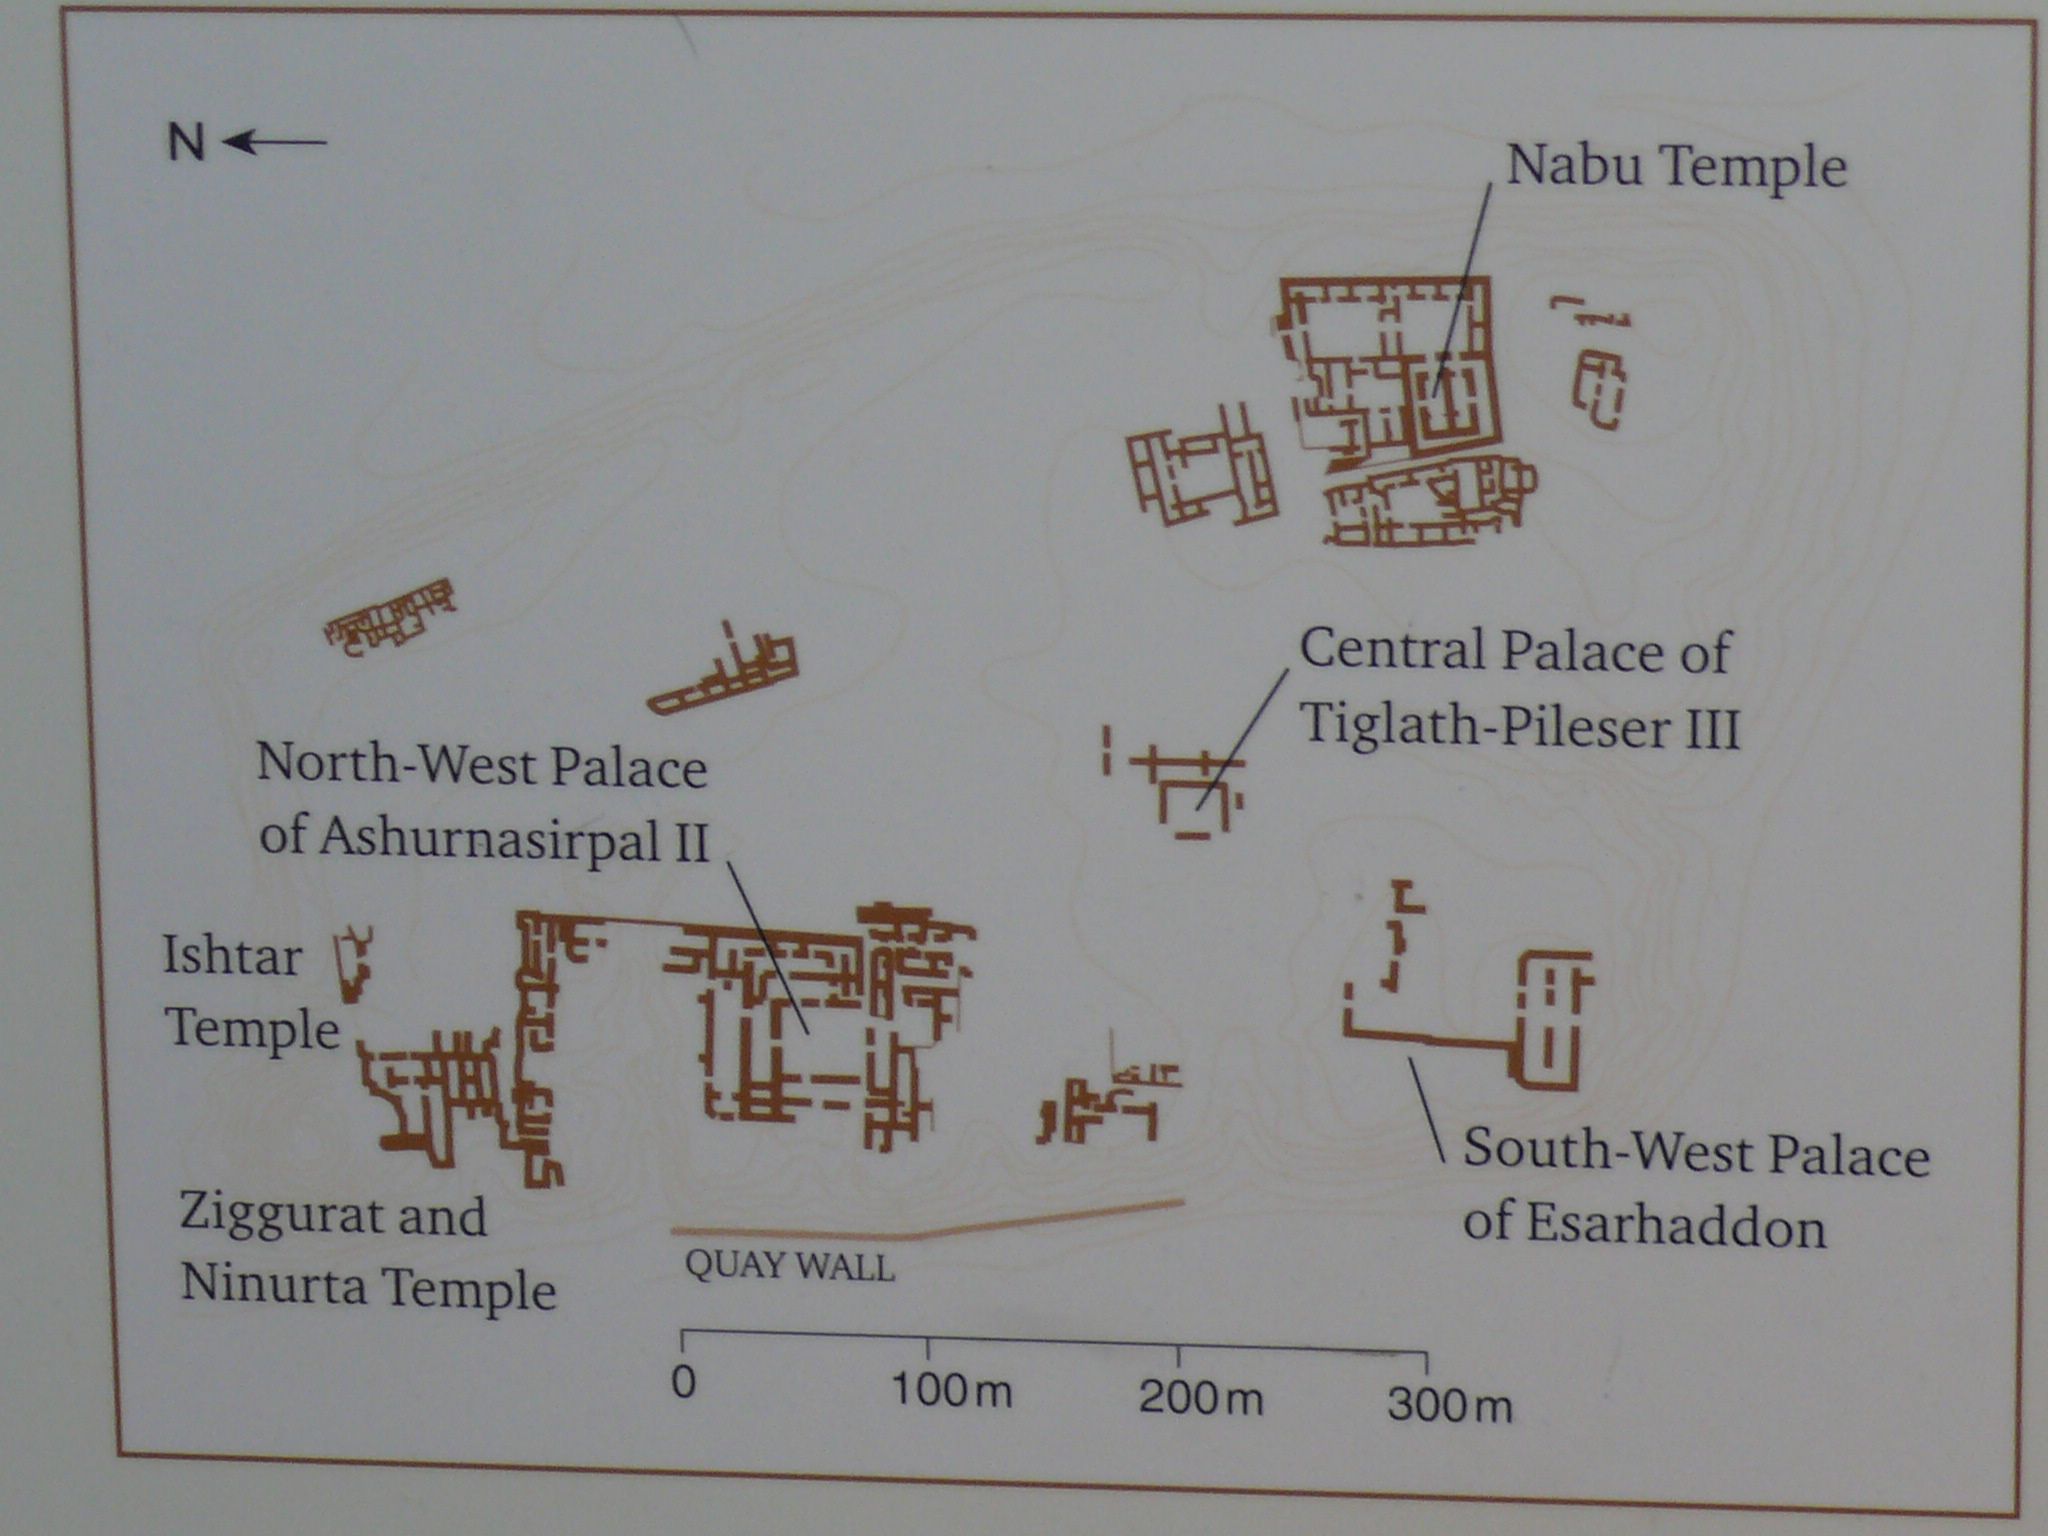 N
Nabu Temple
Central Palace of
Tiglath-Pileser III
North-West Palace
of Ashurnasirpal II
Ishtar
Temple
Ziggurat and
Ninurta Temple
South-West Palace
of Esarhaddon
QUAY WALL
0 100m 200m 300m